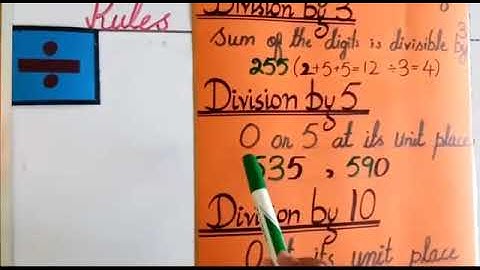 Rules
÷
Division by 3
Sum of the digits is divisible by 3
255 (2+5+5=12 ÷3=4)
Division by 5
0 or 5 at its unit place
535 , 590
Division by 10
0 at its unit place